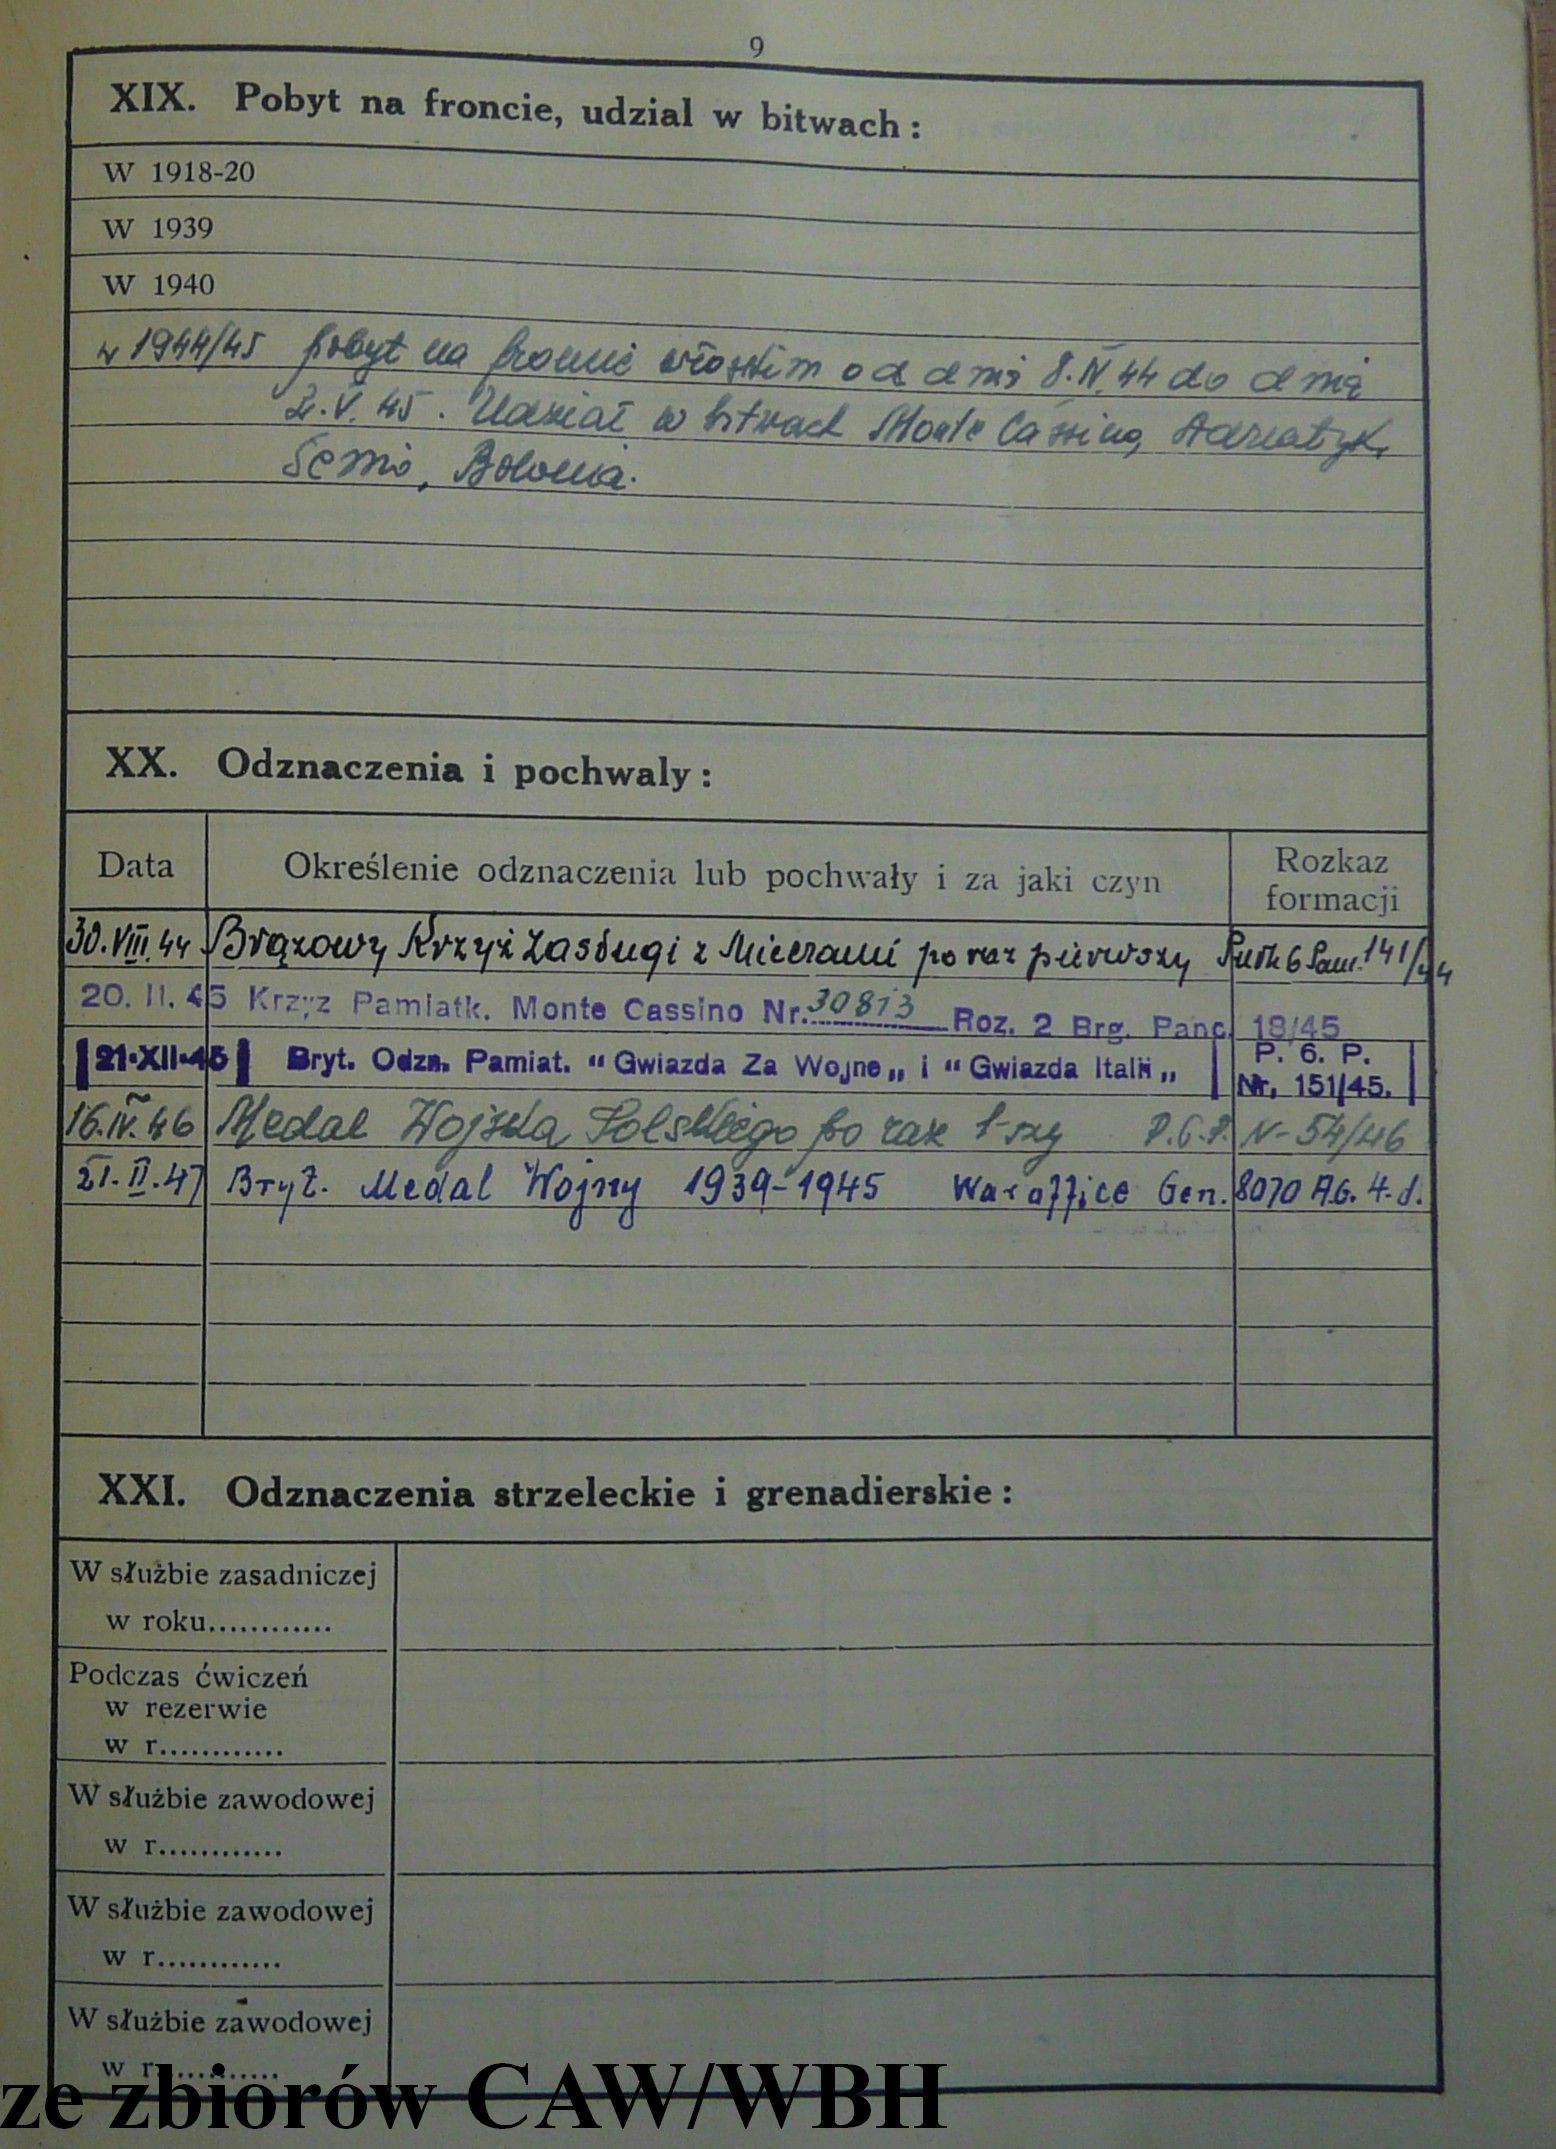 9
XIX. Pobyt na froncie, udzial w bitwach :
W 1918-20
W 1939
W 1940
w 1944/45 pobyt na froncie włoskim od dnia 8.IV.44 do dnia
2.V.45. Udział w bitwach Monte Cassino, Adriatyk,
Senio, Bolonia.
XX. Odznaczenia i pochwaly :
Data Określenie odznaczenia lub pochwały i za jaki czyn Rozkaz formacji
30.VIII.44 Brązowy Krzyż Zasługi z Mieczami po raz pierwszy Pułk 6 Panc. 141/44
20. II. 45 Krzyz Pamiatk. Monte Cassino Nr. 30813 Roz. 2 Brg. Panc. 18/45
21·XII·45 Bryt. Odzn. Pamiat. “ Gwiazda Za Wojne „ i “ Gwiazda Italii „ P. 6. P. Nr. 151/45.
16.IV.46 Medal Wojska Polskiego po raz 1-szy P.6.P. N-54/46
21.II.47 Bryt. Medal Wojny 1939-1945 War office Gen. 8070 A.G. 4.d.
XXI. Odznaczenia strzeleckie i grenadierskie :
W służbie zasadniczej
w roku............
Podczas ćwiczeń
w rezerwie
w r............
W służbie zawodowej
w r............
W służbie zawodowej
w r............
W służbie zawodowej
w r............
ze zbiorów CAW/WBH